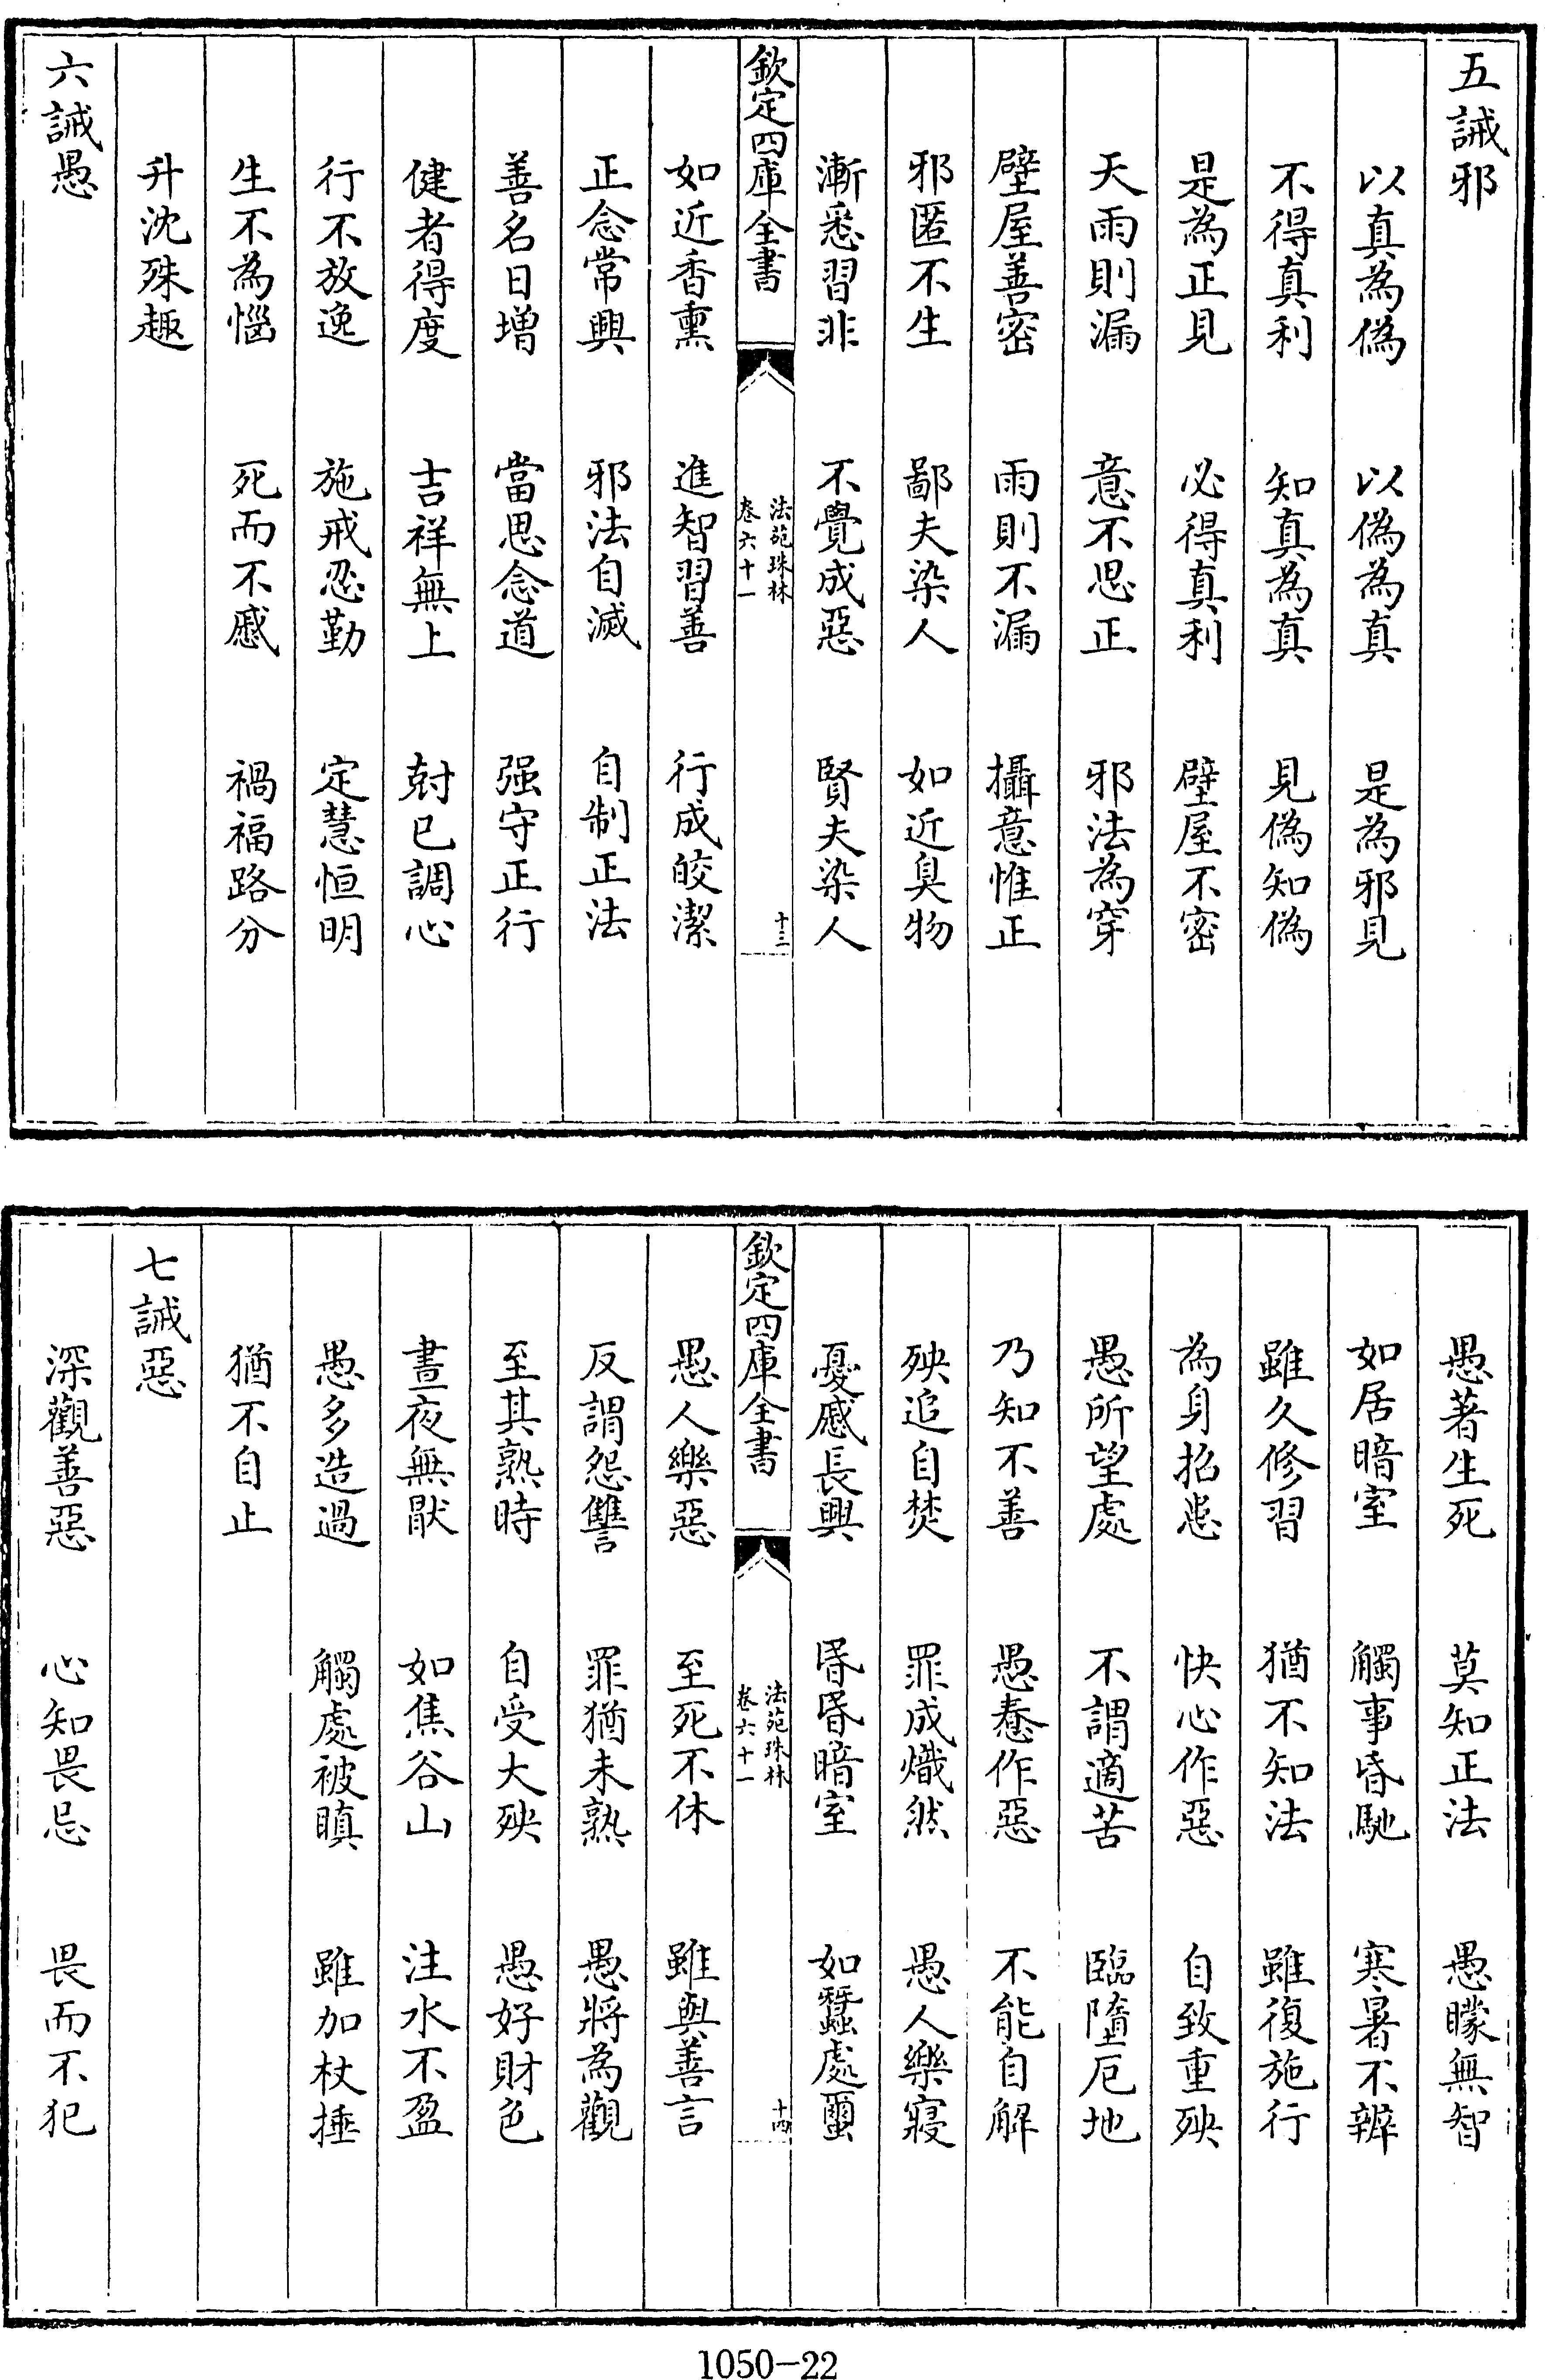 五誡邪
以真為偽　以偽為真　是為邪見
不得真利　知真為真　見偽知偽
是為正見　必得真利　壁屋不密
天雨則漏　意不思正　邪法為穿
壁屋善密　雨則不漏　攝意惟正
邪匿不生　鄙夫染人　如近臭物
漸悉習非　不覺成惡　賢夫染人
欽定四庫全書　法苑珠林　卷六十一　十三
如近香熏　進智習善　行成皎潔
正念常興　邪法自滅　自制正法
善名日增　當思念道　强守正行
健者得度　吉祥無上　尅已調心
行不放逸　施戒忍勤　定慧恒明
生不為惱　死而不慼　禍福路分
升沈殊趣
六誡愚
愚著生死　莫知正法　愚矇無智
如居暗室　觸事昏馳　寒暑不辨
雖久修習　猶不知法　雖復施行
為身招患　快心作惡　自致重殃
愚所望處　不謂適苦　臨墮厄地
乃知不善　愚惷作惡　不能自解
殃追自焚　罪成熾然　愚人樂寢
憂慼長興　昬昬暗室　如蠶處蠒
欽定四庫全書　法苑珠林　卷六十一　十四
愚人樂惡　至死不休　雖與善言
反謂怨讐　罪猶未熟　愚將為觀
至其熟時　自受大殃　愚好財色
晝夜無厭　如焦谷山　注水不盈
愚多造過　觸處被瞋　雖加杖捶
猶不自止
七誡惡
深觀善惡　心知畏忌　畏而不犯
1050-22